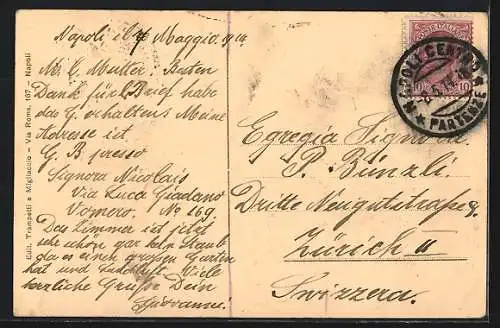 Napoli il 7 Maggio 914
M. C. Mutter. Besten
Dank für Brief habe
das G. erhaltens Meine
Adresse ist
G. B presso
Signora Nicolais
Via Luca Giordano
Vomero. No 169.
Das Zimmer ist jetzt
sehr schön gar kein Staub
da es einen grossen Garten
hat und Viele
herzliche Grüsse Dein
Giovanni.
Edit. Trampetti e Migliaccio - Via Roma, 167 - Napoli
NAPOLI CENTRO
PARTENZE
10 10
Egregia Signora
P. Bünzli.
Dritte Neugutstrasse
Zürich II
Swizzera.